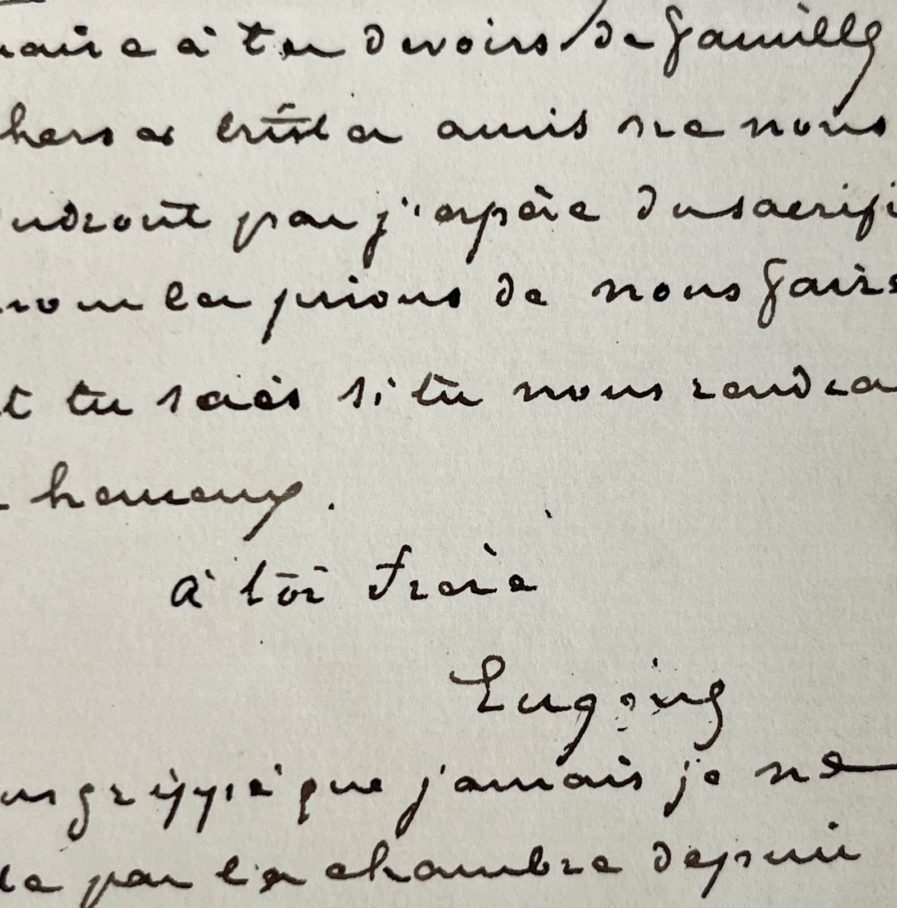 à tes devoirs de famille
tristes amis ne nous
pas j'espère du sacrifi
nous les prions de nous faire
tu sais si tu nous rendra
heureux.
à toi frère
Eugène
grippé que jamais je ne
pas la chambre depuis